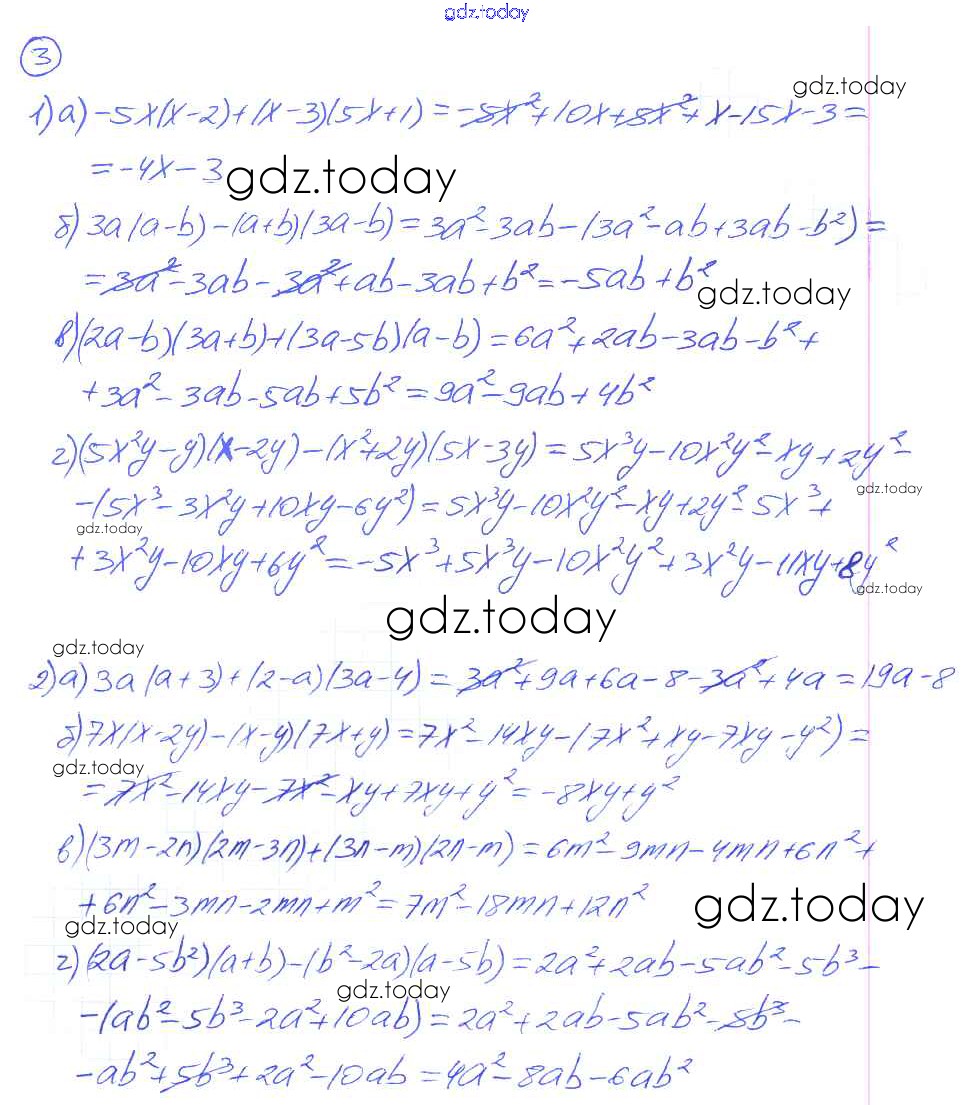 gdz.today
3
gdz.today
1) а) -5x(x-2)+(x-3)(5x+1) = -5x²+10x+5x²+x-15x-3 =
= -4x-3
gdz.today
б) 3a(a-b)-(a+b)(3a-b) = 3a²-3ab-(3a²-ab+3ab-b²) =
= 3a²-3ab-3a²+ab-3ab+b² = -5ab+b²
gdz.today
в) (2a-b)(3a+b)+(3a-5b)(a-b) = 6a²+2ab-3ab-b²+
+3a²-3ab-5ab+5b² = 9a²-9ab+4b²
г) (5x²y-y)(x-2y)-(x²+2y)(5x-3y) = 5x³y-10x²y²-xy+2y²-
gdz.today
-(5x³-3x²y+10xy-6y²) = 5x³y-10x²y²-xy+2y²-5x³+
gdz.today
+3x²y-10xy+6y² = -5x³+5x³y-10x²y²+3x²y-11xy+8y²
gdz.today
gdz.today
gdz.today
2) а) 3a(a+3)+(2-a)(3a-4) = 3a²+9a+6a-8-3a²+4a = 19a-8
б) 7x(x-2y)-(x-y)(7x+y) = 7x²-14xy-(7x²+xy-7xy-y²) =
gdz.today
= 7x²-14xy-7x²-xy+7xy+y² = -8xy+y²
в) (3m-2n)(2m-3n)+(3n-m)(2n-m) = 6m²-9mn-4mn+6n²+
+6n²-3mn-2mn+m² = 7m²-18mn+12n²
gdz.today
gdz.today
г) (2a-5b²)(a+b)-(b²-2a)(a-5b) = 2a²+2ab-5ab²-5b³-
gdz.today
-(ab²-5b³-2a²+10ab) = 2a²+2ab-5ab²-5b³-
-ab²+5b³+2a²-10ab = 4a²-8ab-6ab²